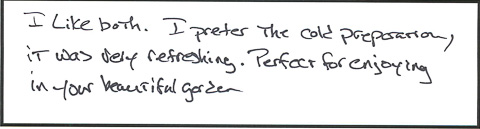 I Like both. I prefer the cold preparation,
it was very refreshing. Perfect for enjoying
in your beautiful garden